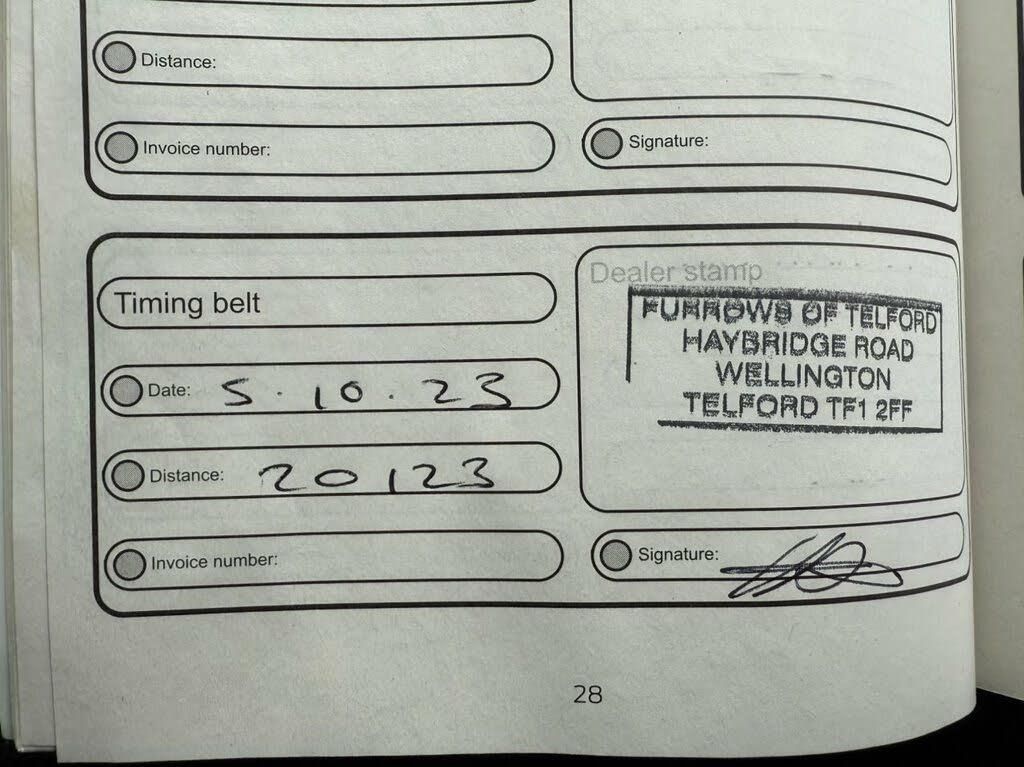 Distance:
Invoice number:
Signature:
Timing belt
Date: 5.10.23
Distance: 20123
Invoice number:
Dealer stamp
FURROWS OF TELFORD
HAYBRIDGE ROAD
WELLINGTON
TELFORD TF1 2FF
Signature:
28